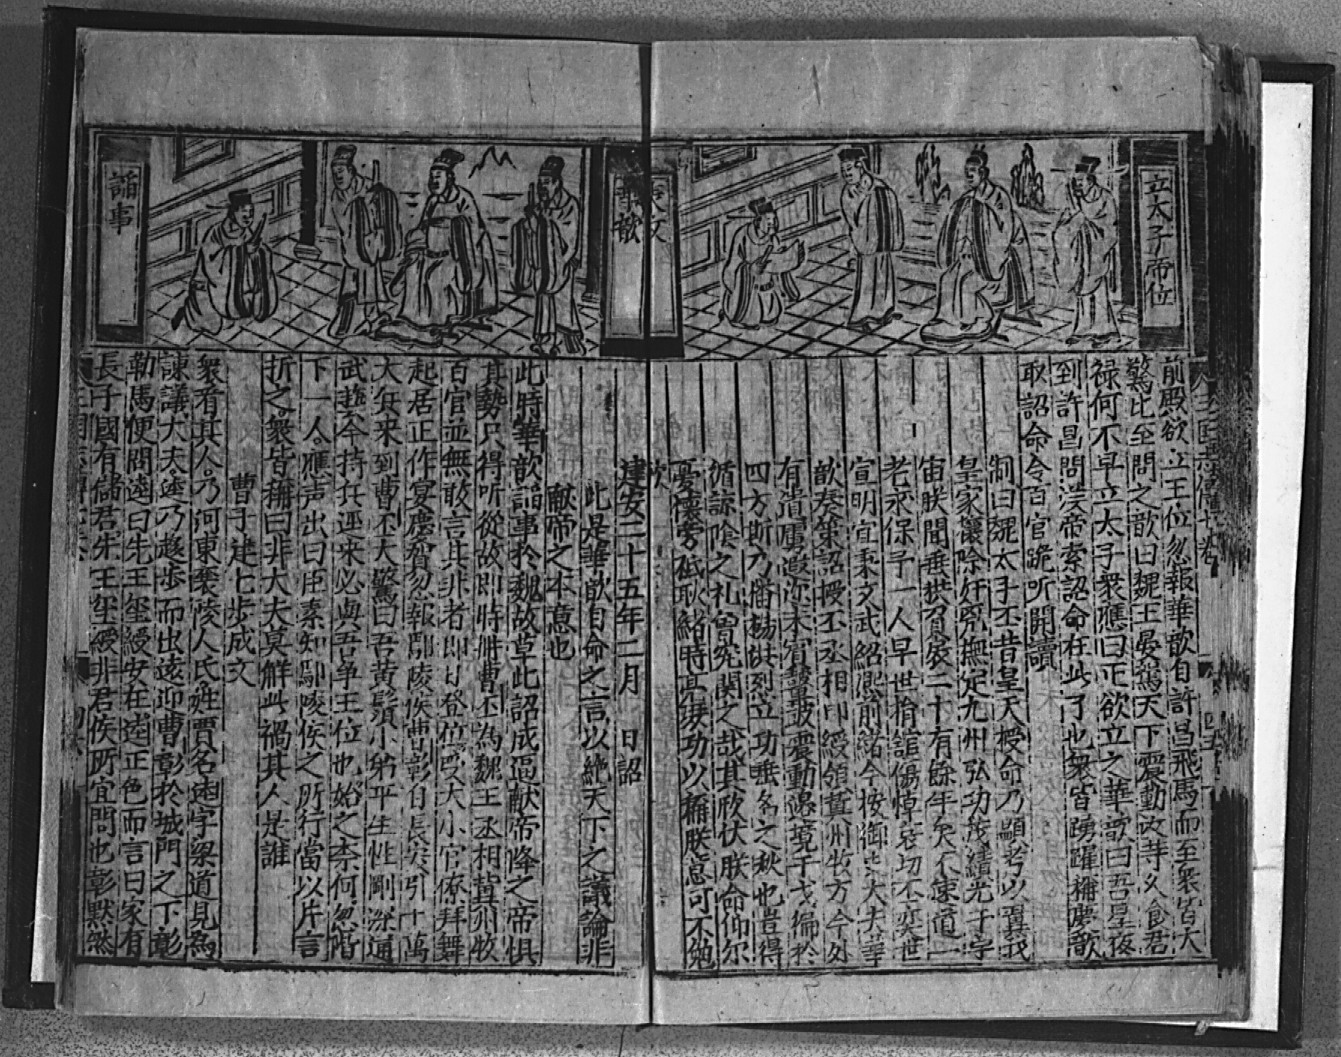 立太子帝位
前殿欲立王位忽報華歆自許昌飛馬而至衆皆大
驚比至問之歆曰魏王晏駕天下震動汝等久食君
禄何不早立太子衆應曰正欲立之華歆曰吾星夜
到許昌問漢帝索詔命在此了也衆皆踴躍稱慶歆
取詔命令百官跪听開讀
制曰魏太子丕昔皇天授命乃顯考以翼我
皇家攘除奸兇撫定九州弘功茂績光于宇
宙朕間垂拱負扆二十有餘年矣不
老永保予一人早世捐舘傷悼哀切丕奕世
宣明宜秉文武紹熙前緒今按御史大夫華
歆奏策詔授丕丞相印綬領冀州牧方今外
有遺虜遐迩未賓鼙鼓震動邊境干戈徧於
四方斯乃播揚洪烈立功垂名之秋也豈得
循諒陰之礼曾究関之哉其欣伏朕命仰尔
憂懷旁祗
時亮
功以稱朕意可不勉
歟
華歆
建安二十五年二月 日詔
此是華歆自命之言以絶天下之議論非
献帝之本意也
此時華歆諂事於魏故草此詔成逼献帝降之帝惧
其勢只得听從故即時冊曹丕為魏王丞相冀州牧
百官並無敢言其非者即日登位受大小官僚拜舞
起居正作宴慶賀忽報鄢陵侯曹彰自長安引十萬
大兵来到曹丕大驚曰吾黃鬚小弟平生性剛深通
武藝今持兵遥来必與吾争王位也如之奈何忽階
下一人應声出曰臣素知鄢陵侯之所行當以片言
折之衆皆稱曰非大夫莫解此禍其人是誰
曹子建七步成文
衆看其人乃河東襄陵人氏姓賈名逵字梁道見為
諫議大夫逵乃趨歩而出遠迎曹彰於城門之下彰
勒馬便問逵曰先王璽綬安在逵正色而言曰家有
長子國有儲君先王璽綬非君侯所宜問也彰默然
諂事